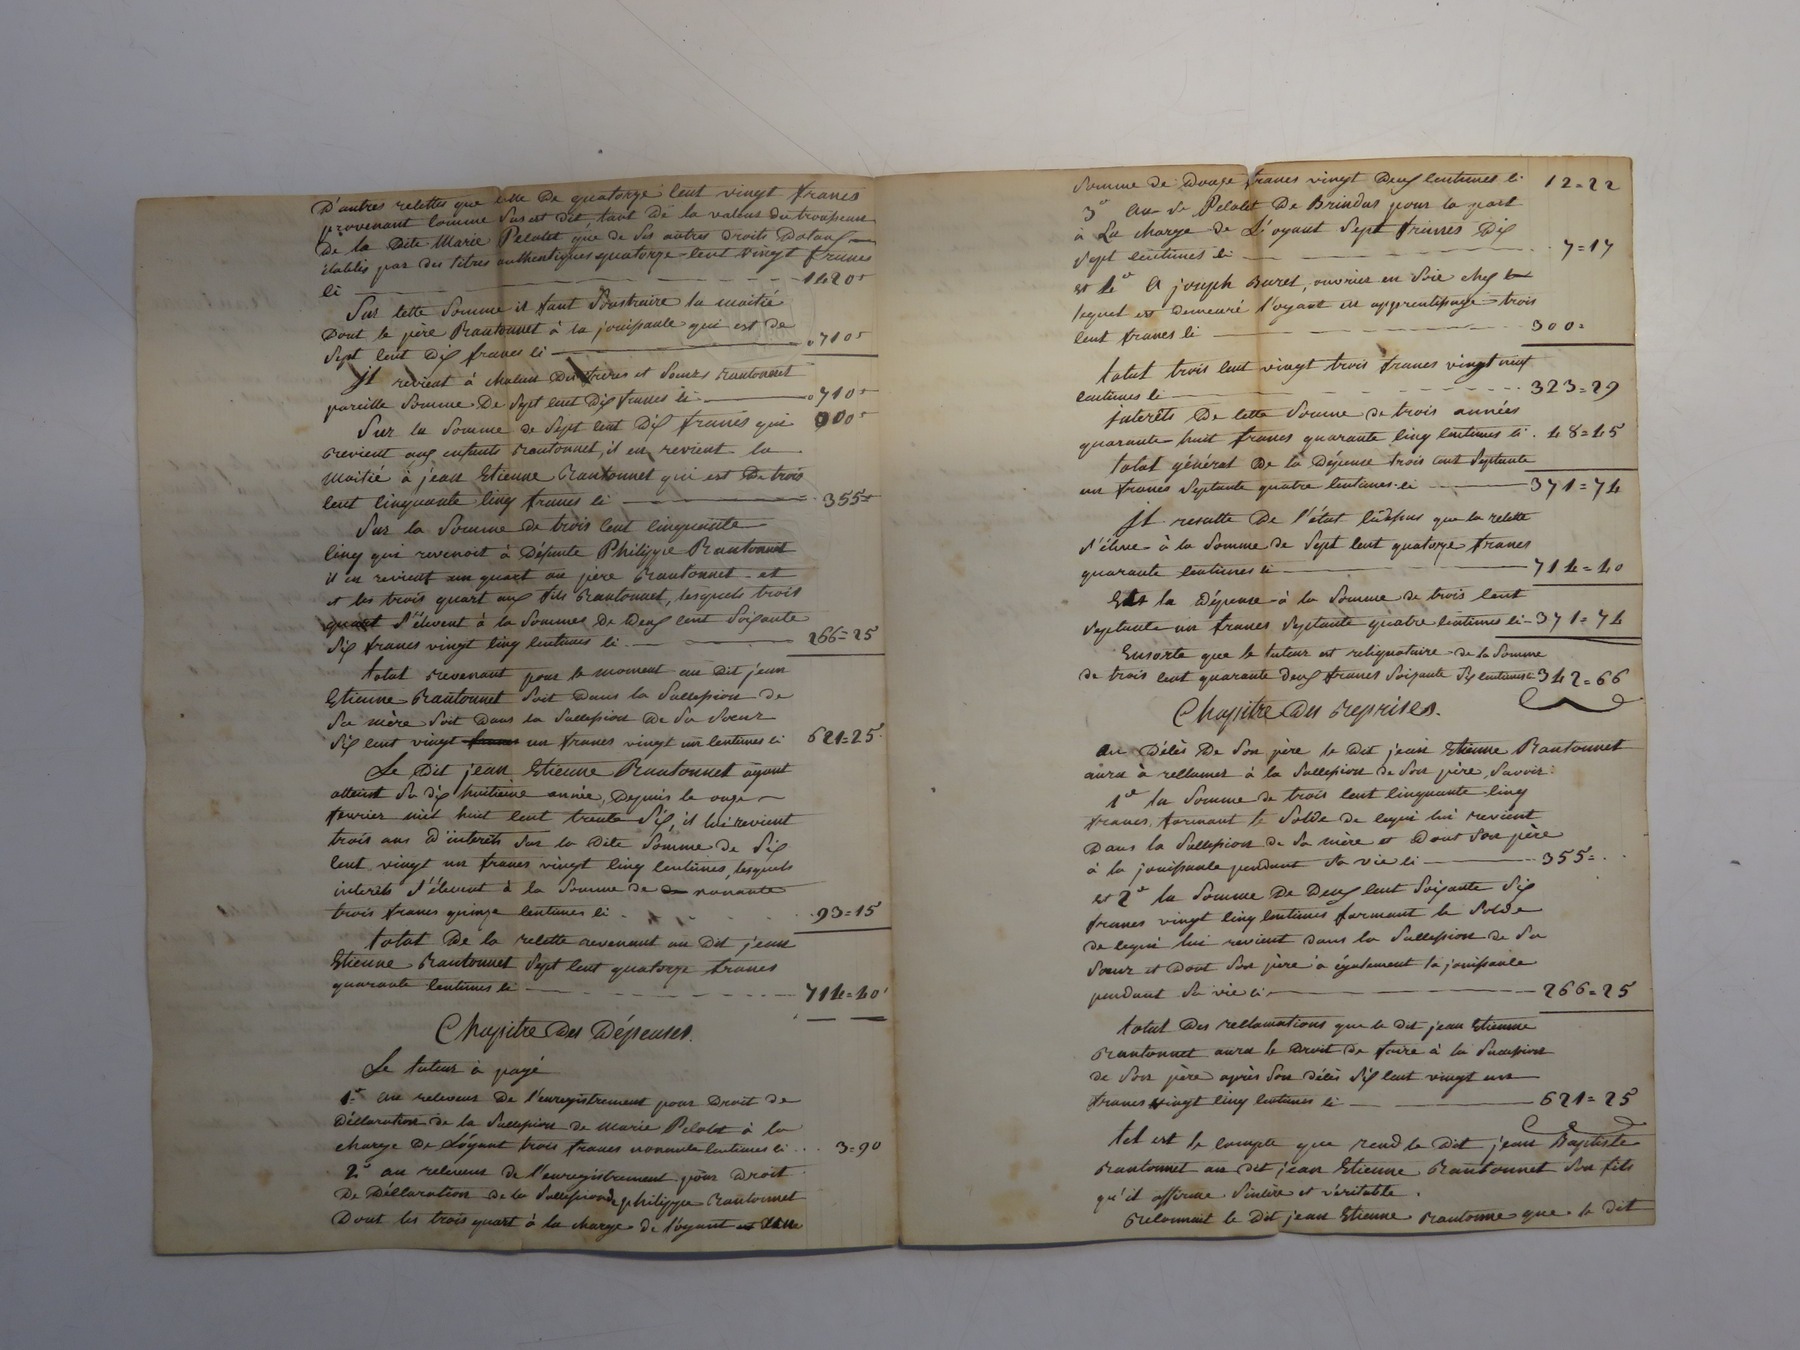 D'autres relettes que celle De quatorze cent vingt francs
provenant comme sus est dit tant De la valeur du trousseau
De la Dite Marie Pelolet que de ses autres droits Dotaux
établis par des titres authentiques quatorze cent vingt francs
ci 1420=
Sur cette somme il faut soustraire la moitié
Dont le père Rantonnet à la jouissance qui est de
sept cent Dix francs ci 0710=
Il revient à chacun Des frères et soeurs Rantonnet
pareille somme De sept cent Dix francs ci 0710=
Sur la somme de sept cent Dix francs qui 000=
revient aux enfants Rantonnet, il en revient la
moitié à jean Etienne Rantonnet qui est De trois
cent cinquante cinq francs ci 355=
Sur la somme de trois cent cinquante
cinq qui revenoit à Défunte Philippe Rantonnet
il en revient un quart au père Rantonnet et
et les trois quart aux fils Rantonnet, lesquels trois
quart s'élevent à la sommes de Deux cent soixante
six francs vingt cinq centimes ci 266=25
total revenant pour le moment au Dit jean
Etienne Rantonnet soit Dans la succession de
sa mère soit Dans la succession De sa soeur
six cent vingt francs un francs vingt un centimes ci 621=25
Le Dit jean Etienne Rantonnet ayant
atteint sa dix huitieme année, Depuis le onze
fevrier mil huit cent trente six, il lui revient
trois ans D'interêts sur la Dite somme de six
cent vingt un francs vingt cinq centimes, lesquels
interêts s'élevent à la somme de nonante
trois francs quinze centimes ci 93=15
total De la relette revenant au Dit jean
Etienne Rantonnet sept cent quatorze francs
quarante centimes ci 714=40
Chapitre Des Dépenses.
Le tuteur à payé
1° au releveur de l'enregistrement pour Droit de
Déclaration de la succession de Marie Pelolet à la
charge De L'oyant trois francs nonante centimes ci 3=90
2° au releveur de l'enregistrement pour Droit
De Déclaration de la succession de philippe Rantonnet
Dont les trois quart à la charge de l'oyant
somme de Douze francs vingt Deux centimes ci 12=22
3° au sr Pelolet De Brindas pour la part
à La charge de L'oyant sept francs Dix
sept centimes ci 7=17
et 4° A joseph Buret, ouvrier en soie chez le
lequel est demeuré l'oyant en apprentissage trois
cent francs ci 300=
total trois cent vingt trois francs vingt neuf
centimes ci 323=29
Interêts De cette somme de trois années
quarante huit francs quarante cinq centimes ci 48=45
total général De la Dépense trois cent septante
un francs septante quatre centimes ci 371=74
Il resulte De l'état cidessus que la relette
s'éleve à la somme de sept cent quatorze francs
quarante centimes ci 714=40
Et la Dépense à la somme de trois cent
septante un francs septante quatre centimes ci 371=74
Ensorte que le tuteur est reliquataire de la somme
de trois cent quarante deux francs soixante six centimes ci 342=66
Chapitre Des reprises.
Au Décès De son père le Dit jean Etienne Rantonnet
aura à réclamer à la succession de son père, savoir
1° la somme de trois cent cinquante cinq
francs, formant le solde de cequi lui revient
Dans la succession de sa mère et Dont son père
à la jouissance pendant sa vie ci 355=
et 2° la somme De Deux cent soixante six
francs vingt cinq centimes formant le solde
de cequi lui revient dans la succession de sa
soeur et Dont son père à également la jouissance
pendant sa vie ci 266=25
total Des reclamations que le dit jean Etienne
Rantonnet aura le Droit de faire à la succession
de son père après son décès six cent vingt un
francs vingt cinq centimes ci 621=25
tel est le compte que rend le Dit jean Baptiste
Rantonnet au Dit jean Etienne Rantonnet son fils
qu'il affirme sincère et véritable.
reconnait le Dit jean Etienne Rantonne que le dit